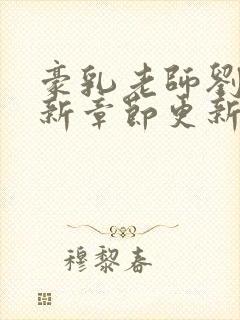 豪乳老師劉
新章節更新
穆黎春